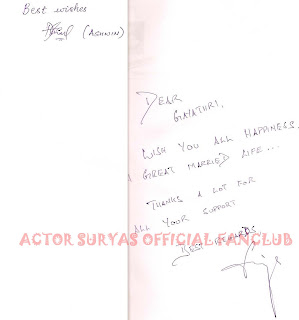 Best wishes
(ASHWIN)
DEAR
GAYATHRI,
WISH YOU ALL HAPPINESS.
A GREAT MARRIED LIFE...
THANKS A LOT FOR
ALL YOUR SUPPORT
ACTOR SURYAS OFFICIAL FANCLUB
BEST REGARDS,